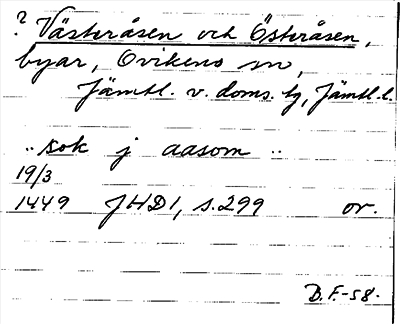 ? Västeråsen och Österåsen,
byar, Ovikens sn,
Jämtl. v. doms. tg, Jämtl. l.
„ sok j aasom „
19/3
1449 JHD1, s. 299 or.
B.F.-58.